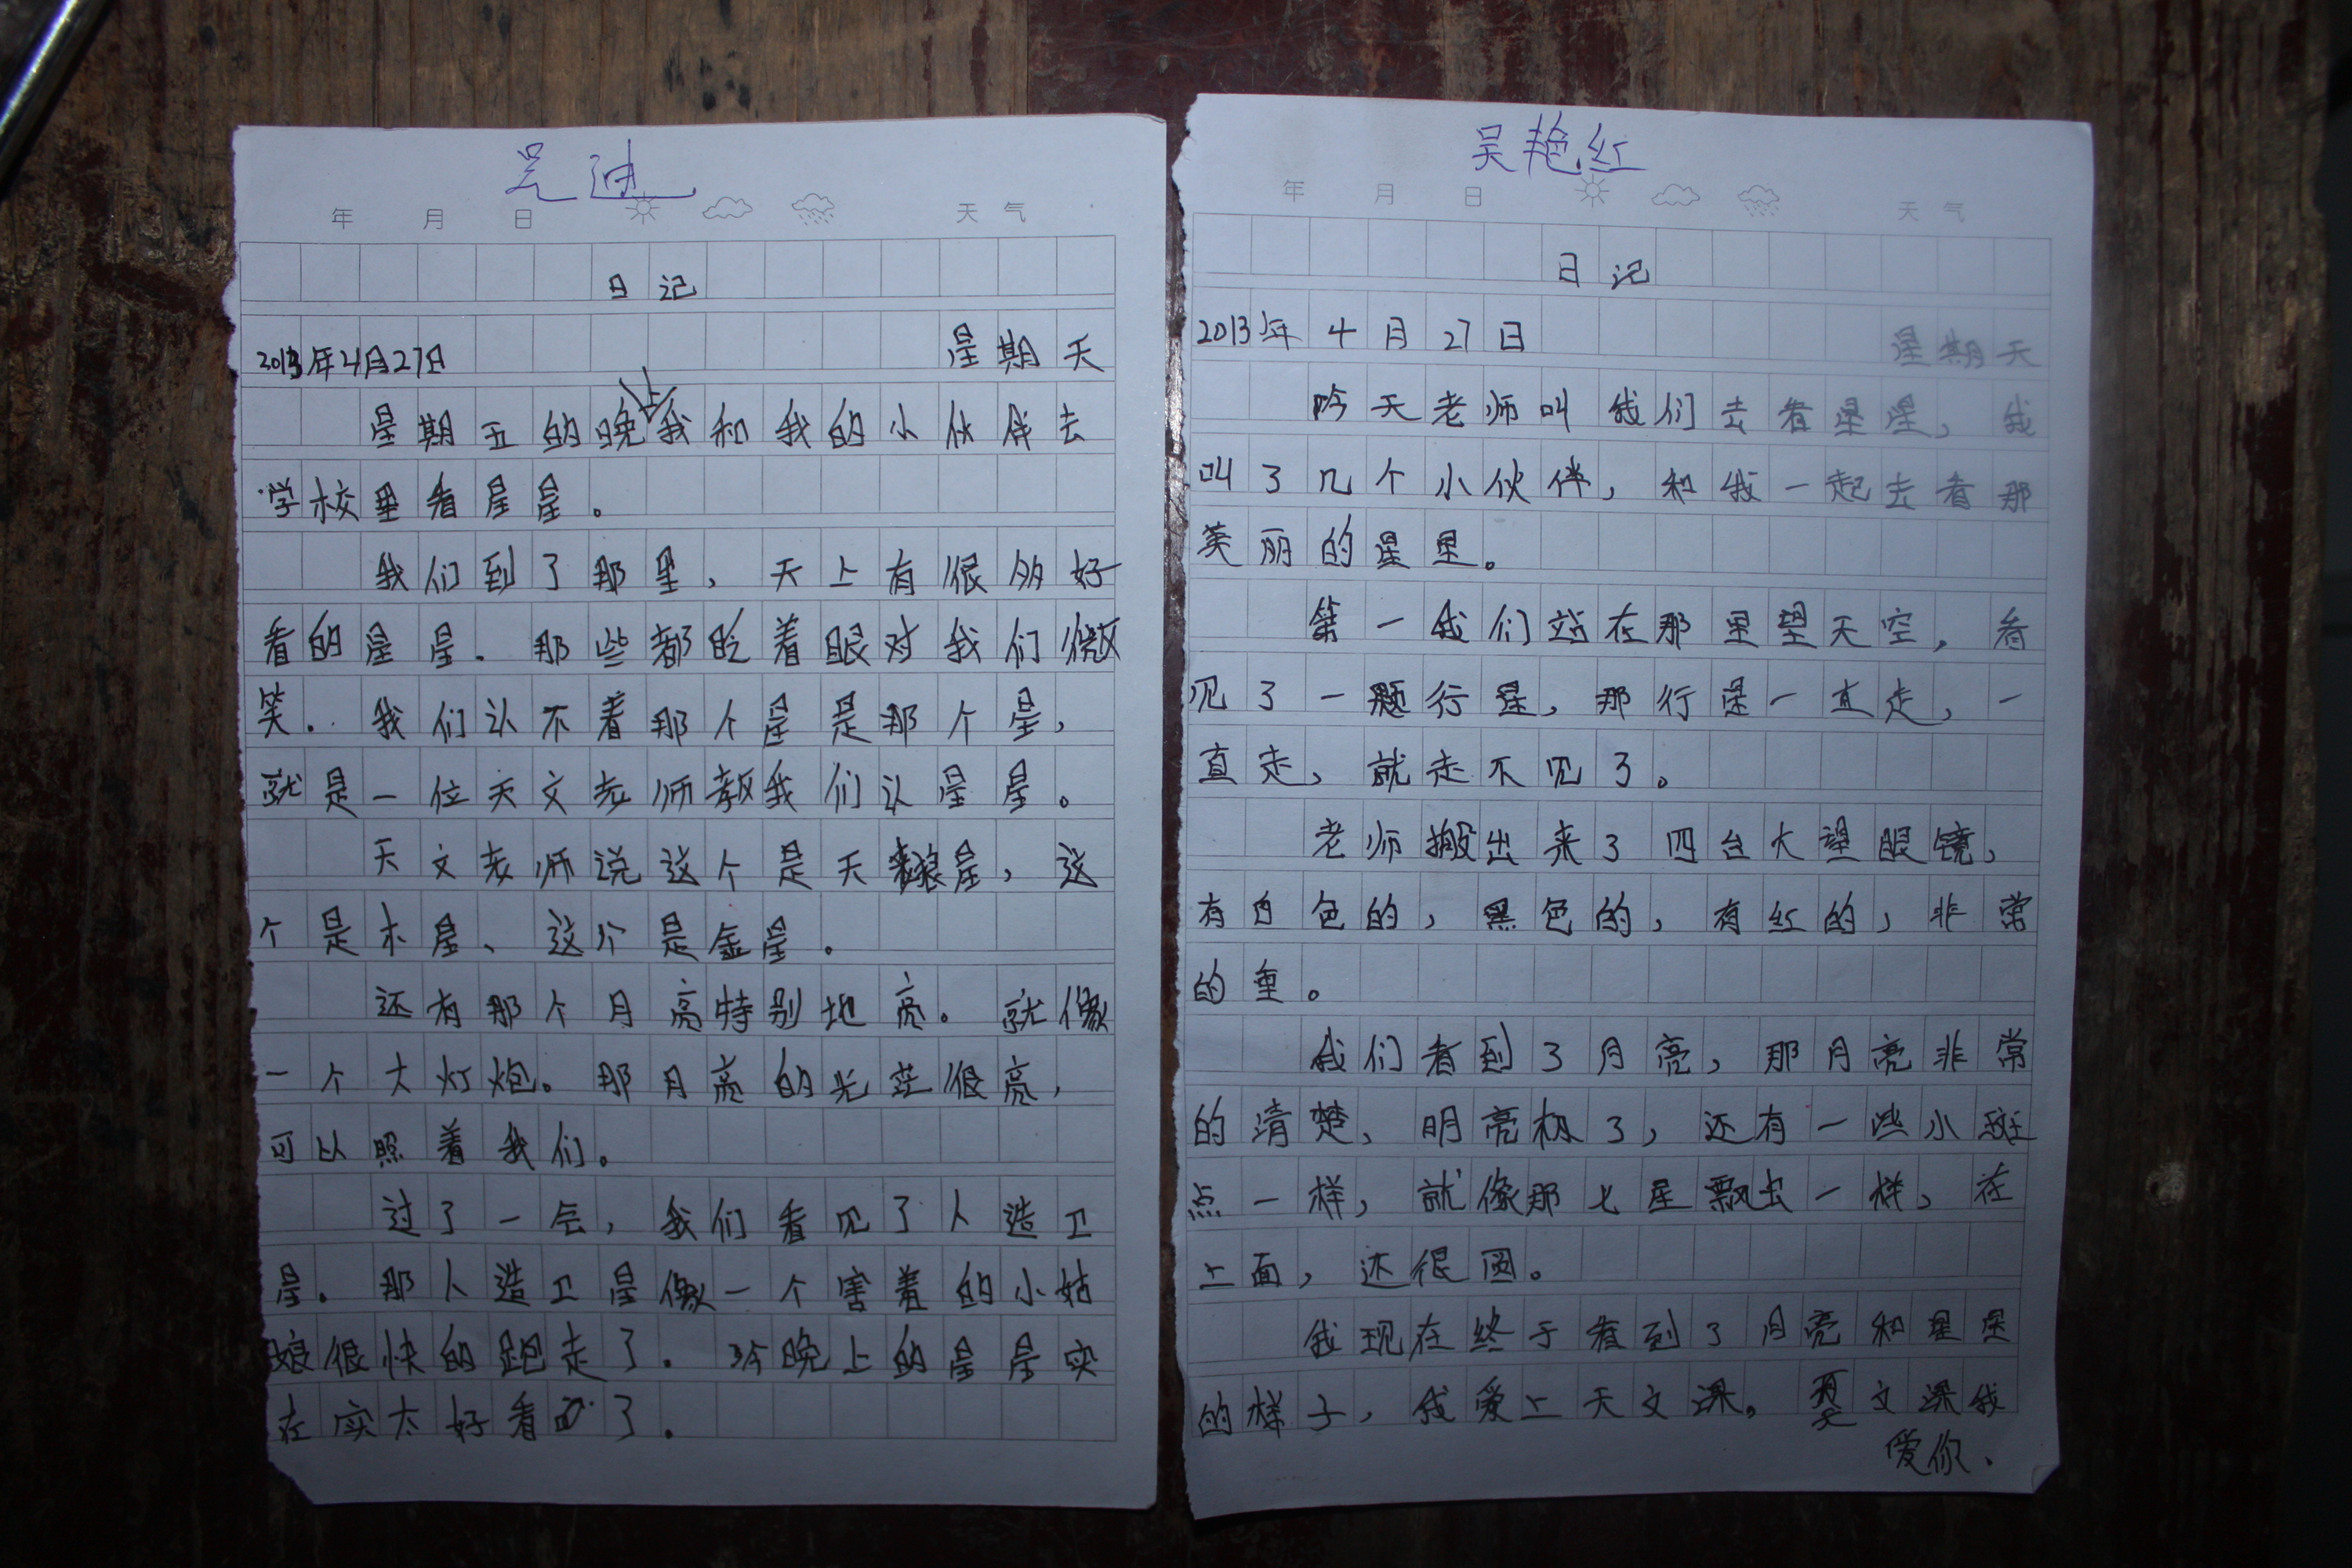 吴迪
年 月 日 天气
日记
2013年4月27日 星期天
星期五的晚上我和我的小伙伴去
学校里看星星。
我们到了那里,天上有很多好
看的星星.那些都眨着眼对我们微
笑.我们认不着那个星是那个星,
就是一位天文老师教我们认星星。
天文老师说这个是天狼星,这
个是木星、这个是金星.
还有那个月亮特别地亮。就像
一个大灯炮。那月亮的光茫很亮,
可以照着我们。
过了一会,我们看见了人造卫
星.那人造卫星像一个害羞的小姑
娘很快的跑走了.今晚上的星星实
在实太好看了.
吴艳红
年 月 日 天气
日记
2013年4月27日 星期天
昨天老师叫我们去看星星,我
叫了几个小伙伴,和我一起去看那
美丽的星星。
第一我们站在那里望天空,看
见了一题行星,那行星一直走,一
直走,就走不见了。
老师搬出来了四台大望眼镜,
有白色的,黑色的,有红的,非常
的重。
我们看到了月亮,那月亮非常
的清楚、明亮极了,还有一些小斑
点一样,就像那七星瓢虫一样,在
上面,还很圆。
我现在终于看到了月亮和星星
的样子,我爱上天文课。文课我
爱你、